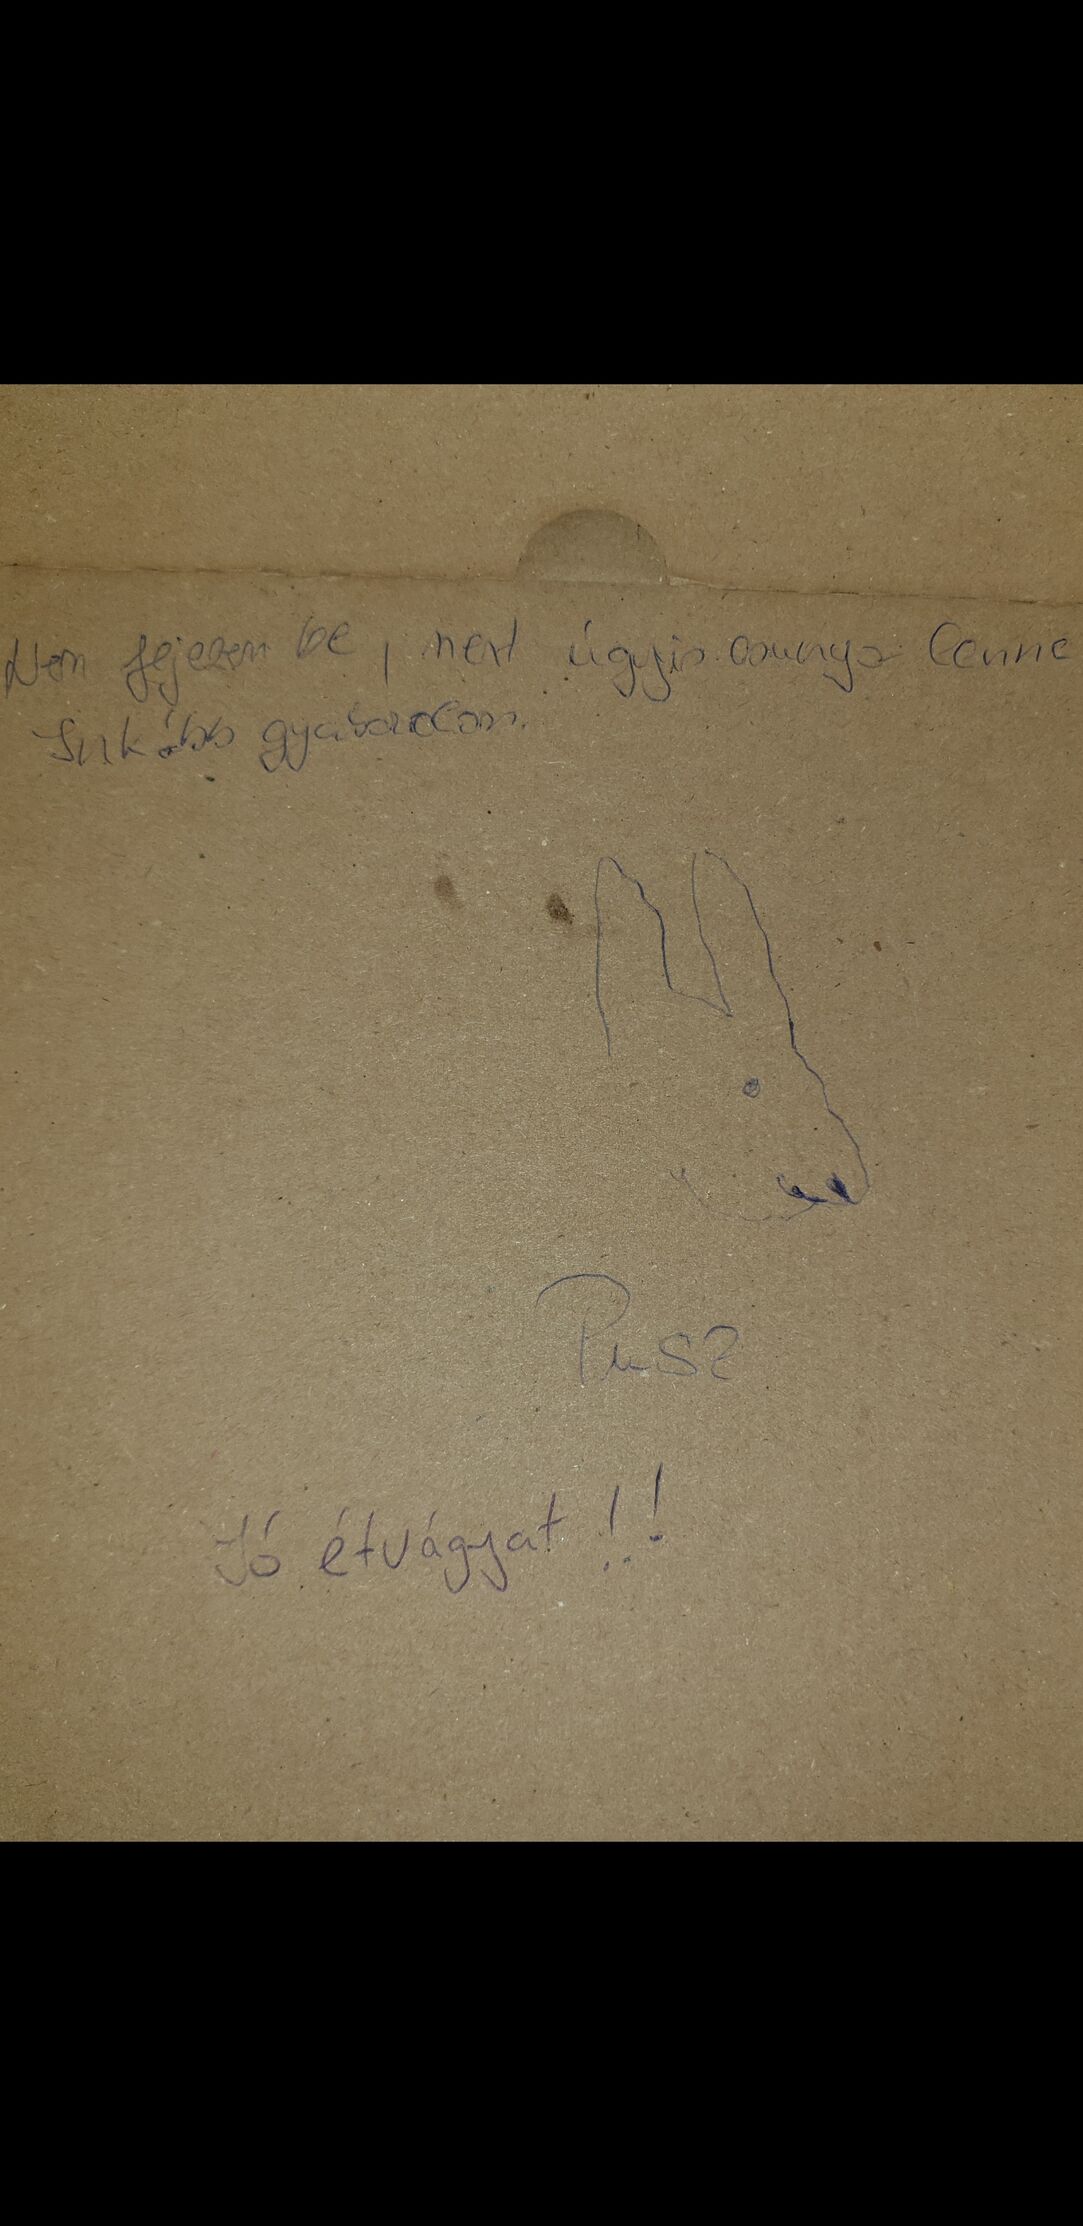 Nem fejezem be, mert úgyis csunya lenne
Inkább gyakorolom.
Pusz
Jó étvágyat!!